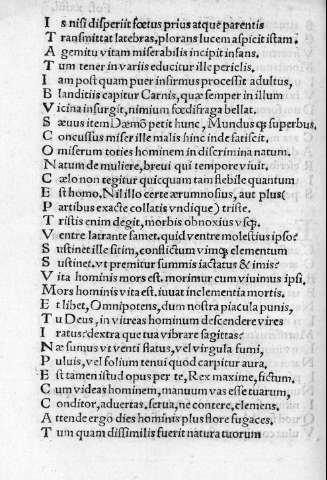 I s nisi disperiit fœtus prius atque parentis
T ransmittat latebras, plorans lucem aspicit istam.
A gemitu vitam miserabilis incipit insans.
T um tener in variis educitur ille periclis.
I am post quam puer infirmus processit adultus,
B landitiis capitur Carnis, quæ semper in illum
V icina insurgit, nimium fœdifraga bellat.
S æuus item Dæmõ petit hunc, Mundus q; superbus.
C oncussus miser ille malis hinc inde fatiscit.
O miserum toties hominem in discrimina natum.
N atum de muliere, breui qui tempore viuit.
C ælo non tegitur quicquam tam flebile quantum
E st homo. Nil illo certe ærumnosius, aut plus (
P artibus exacte collatis vndique) triste.
T ristis enim degit, morbis obnoxius vsq;.
V entre latrante famet. quid ventre molestius ipso?
S ustinet ille sitim, conflictum vimq; elementum
S ustinet. vt premitur summis iactatus & imis?
V ita hominis mors est. morimur cum viuimus ipsi.
M ors hominis vita est. iuuat inclementia mortis.
E t libet, Omnipotens, dum nostra piacula punis,
T u Deus, in vitreas hominum descendere vires
I ratus? dextra que tua vibrare sagittas?
N æ sumus vt venti flatus, vel virgula fumi,
P uluis, vel folium tenui quod carpitur aura.
E st tamen istud opus per te, Rex maxime, fictum.
C um videas hominem, manuum vas esse tuarum,
C onditor, aduertas, serua, ne contere, clemens.
A ttende ergo dies hominis plus flore fugaces.
T um quam dissimilis fuerit natura tuorum